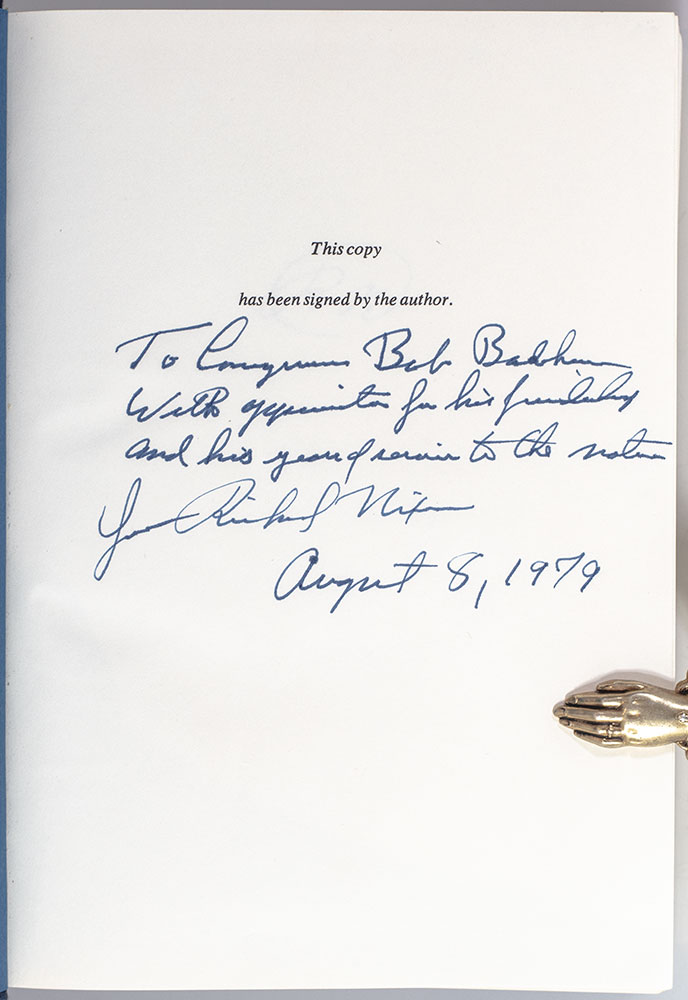 This copy
has been signed by the author.
To Congressman Bob Badham
With appreciation for his friendship
and his years of service to the nation
from Richard Nixon
August 8, 1979